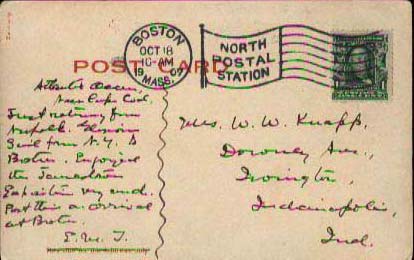 BOSTON
OCT 18
10-AM
1907
MASS.
NORTH
POSTAL
STATION
POST CARD
Atlantic Ocean,
Near Cape Cod.
Just returning from
Norfolk.
Sail from N.Y. to
Boston. Enjoyed
the Jamestown
Exposition very much.
Post this on arrival
at Boston.
E. M. T.
Mrs. W. W. Knapp,
Downey Ave.,
Irvington,
Indianapolis,
Ind.